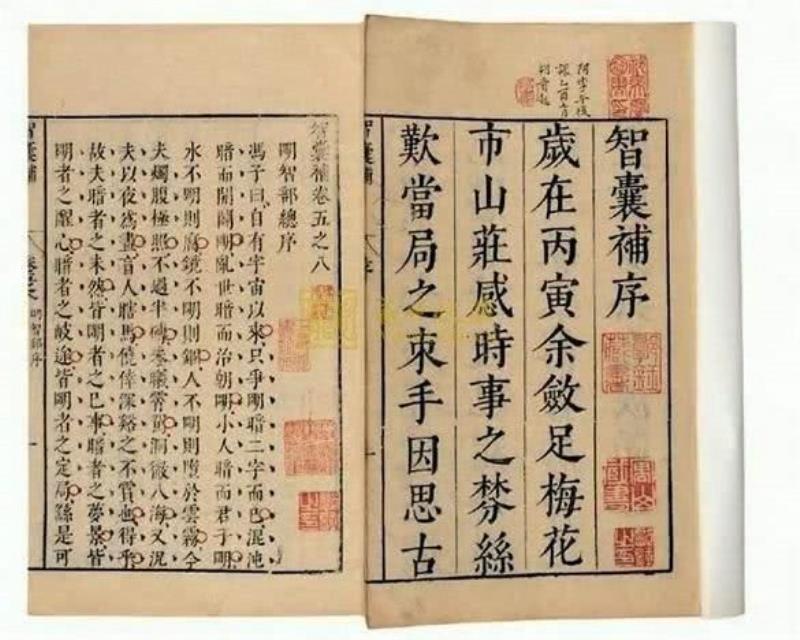 智囊補序
歲在丙寅余斂足梅花
市山莊感時事之棼絲
歎當局之束手因思古
智囊補
序
一
智囊補卷五之八
明智部總序
馮子曰自有宇宙以來只爭明暗二字而已混沌
暗而開闢明亂世暗而治朝明小人暗而君子明
水不明則腐鏡不明則錮人不明則墮於雲霧今
夫燭腹極照不過半磚朱曦霄駕洞徹八海又況
夫以夜為晝盲人瞎馬僥倖深谿之不霣也得乎
故夫暗者之未然皆明者之已事暗者之夢景皆
明者之醒心暗者之歧途皆明者之定局繇是可
智囊補
明智部序
一